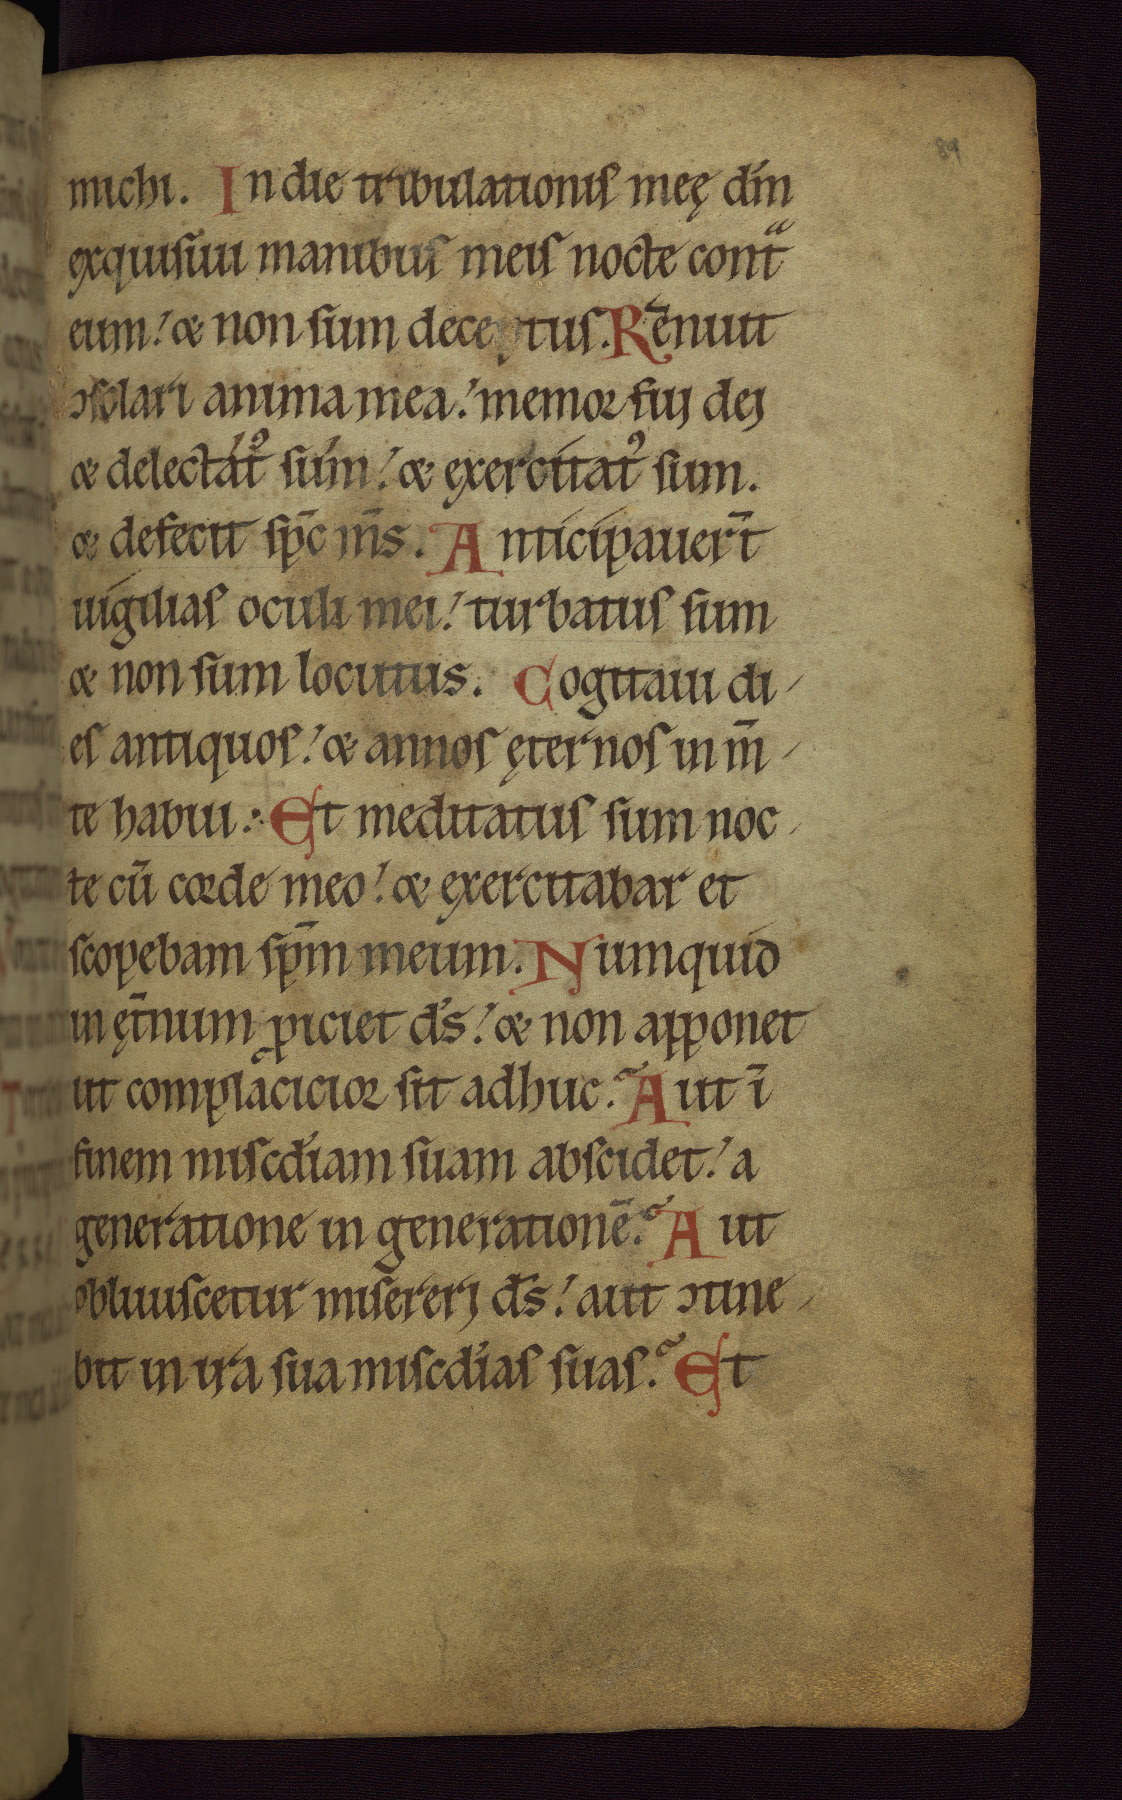 89
michi. In die tribulationis meę dm̄
exquisiui manibus meis nocte contᷓ
eum! & non sum deceptus. Rēnuit
ɔsolari anima mea! memor fuj dej
& delectatꝰ sum! & exercitatꝰ sum.
& defecit spc̄ ms̄. Anticipauer̄t
uigilias oculi mei! turbatus sum
& non sum locutus. Cogitaui di-
es antiquos! & annos ęternos in m̄-
te habui. Et meditatus sum noc-
te cū corde meo! & exercitabar et
scopebam spm̄ meum. Numquid
in ęt̄num ꝓiciet ds̄! & non apponet
ut complacicior sit adhuc. Aut ī
finem miscd̄iam suam abscidet! a
generatione in generationē. Aut
obliuiscetur misererj ds̄! aut ɔtine-
bit in ira sua miscd̄ias suas. Et